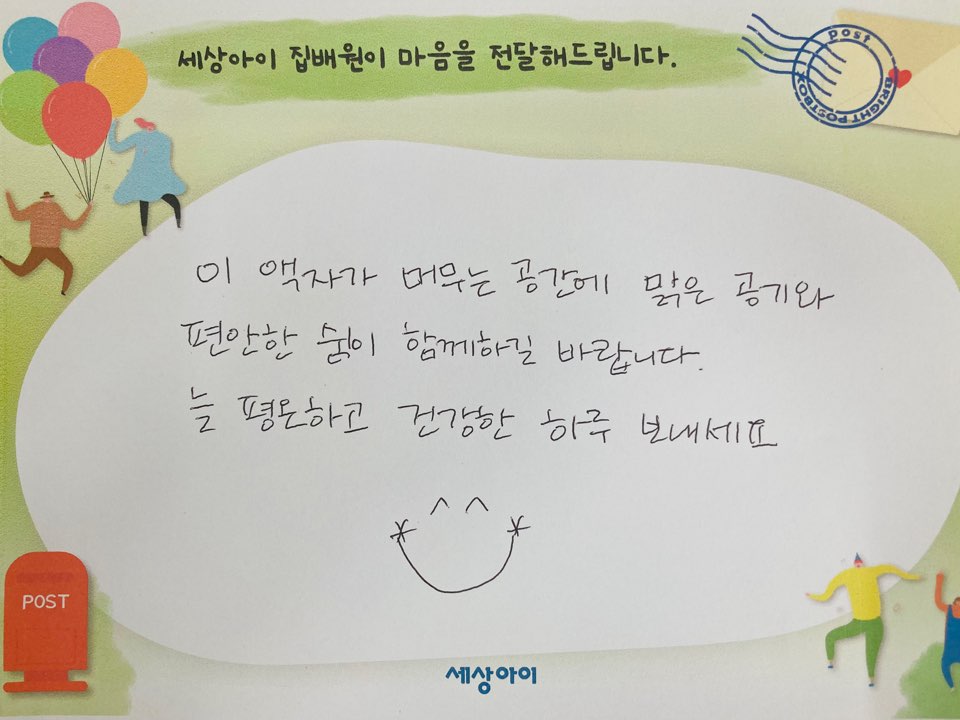 세상아이 집배원이 마음을 전달해드립니다.
post
BRIGHT POSTBOX
이 액자가 머무는 공간에 맑은 공기와
편안한 쉼이 함께하길 바랍니다.
늘 평온하고 건강한 하루 보내세요
POST
세상아이